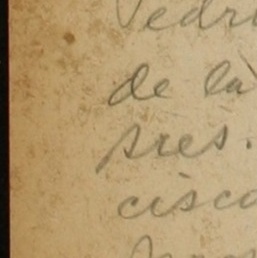 Pedri
de la
sres.
cisco